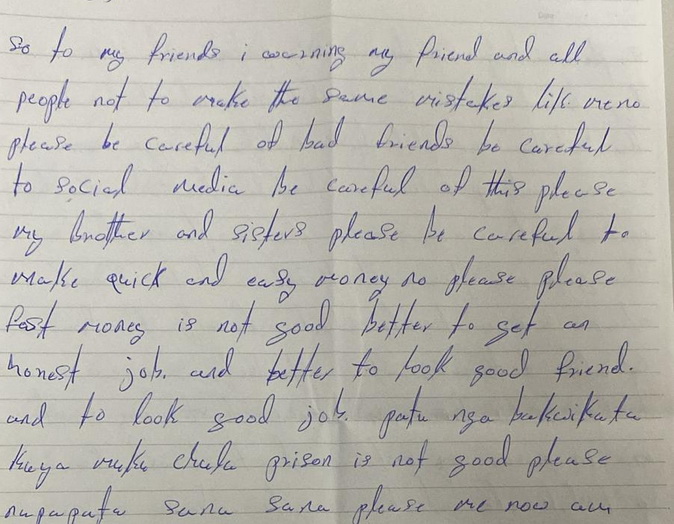 So to my friends i warning my friend and all
people not to make the same mistakes like me no
please be careful of bad friends be careful
to social media be careful of this please
my brother and sisters please be careful to
make quick and easy money no please please
fast money is not good better to get an
honest job. and better to look good friend.
and to look good job.
prison is not good please
sana sana please me now am